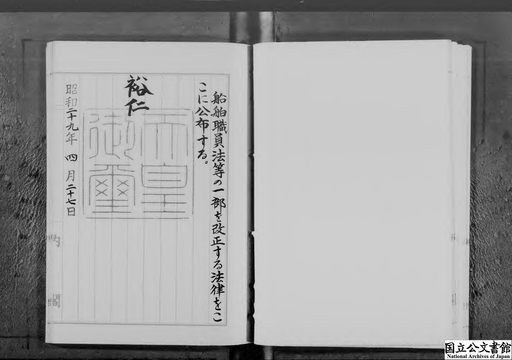 船舶職員法等の一部を改正する法律をこ
こに公布する。
裕仁
天皇
御璽
昭和二十九年 四月二十七日
内閣
国立公文書館
National Archives of Japan